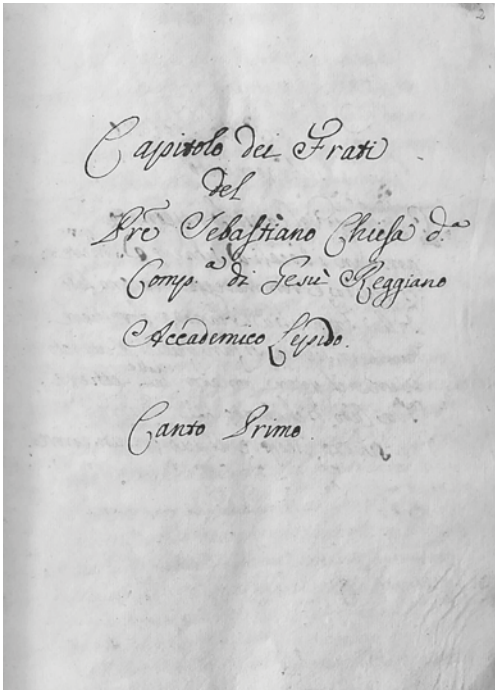 2
Capitolo dei Frati
del
Pre Sebastiano Chiesa d.a
Comp.a di Gesù Reggiano
Accademico Lepido.
Canto Primo